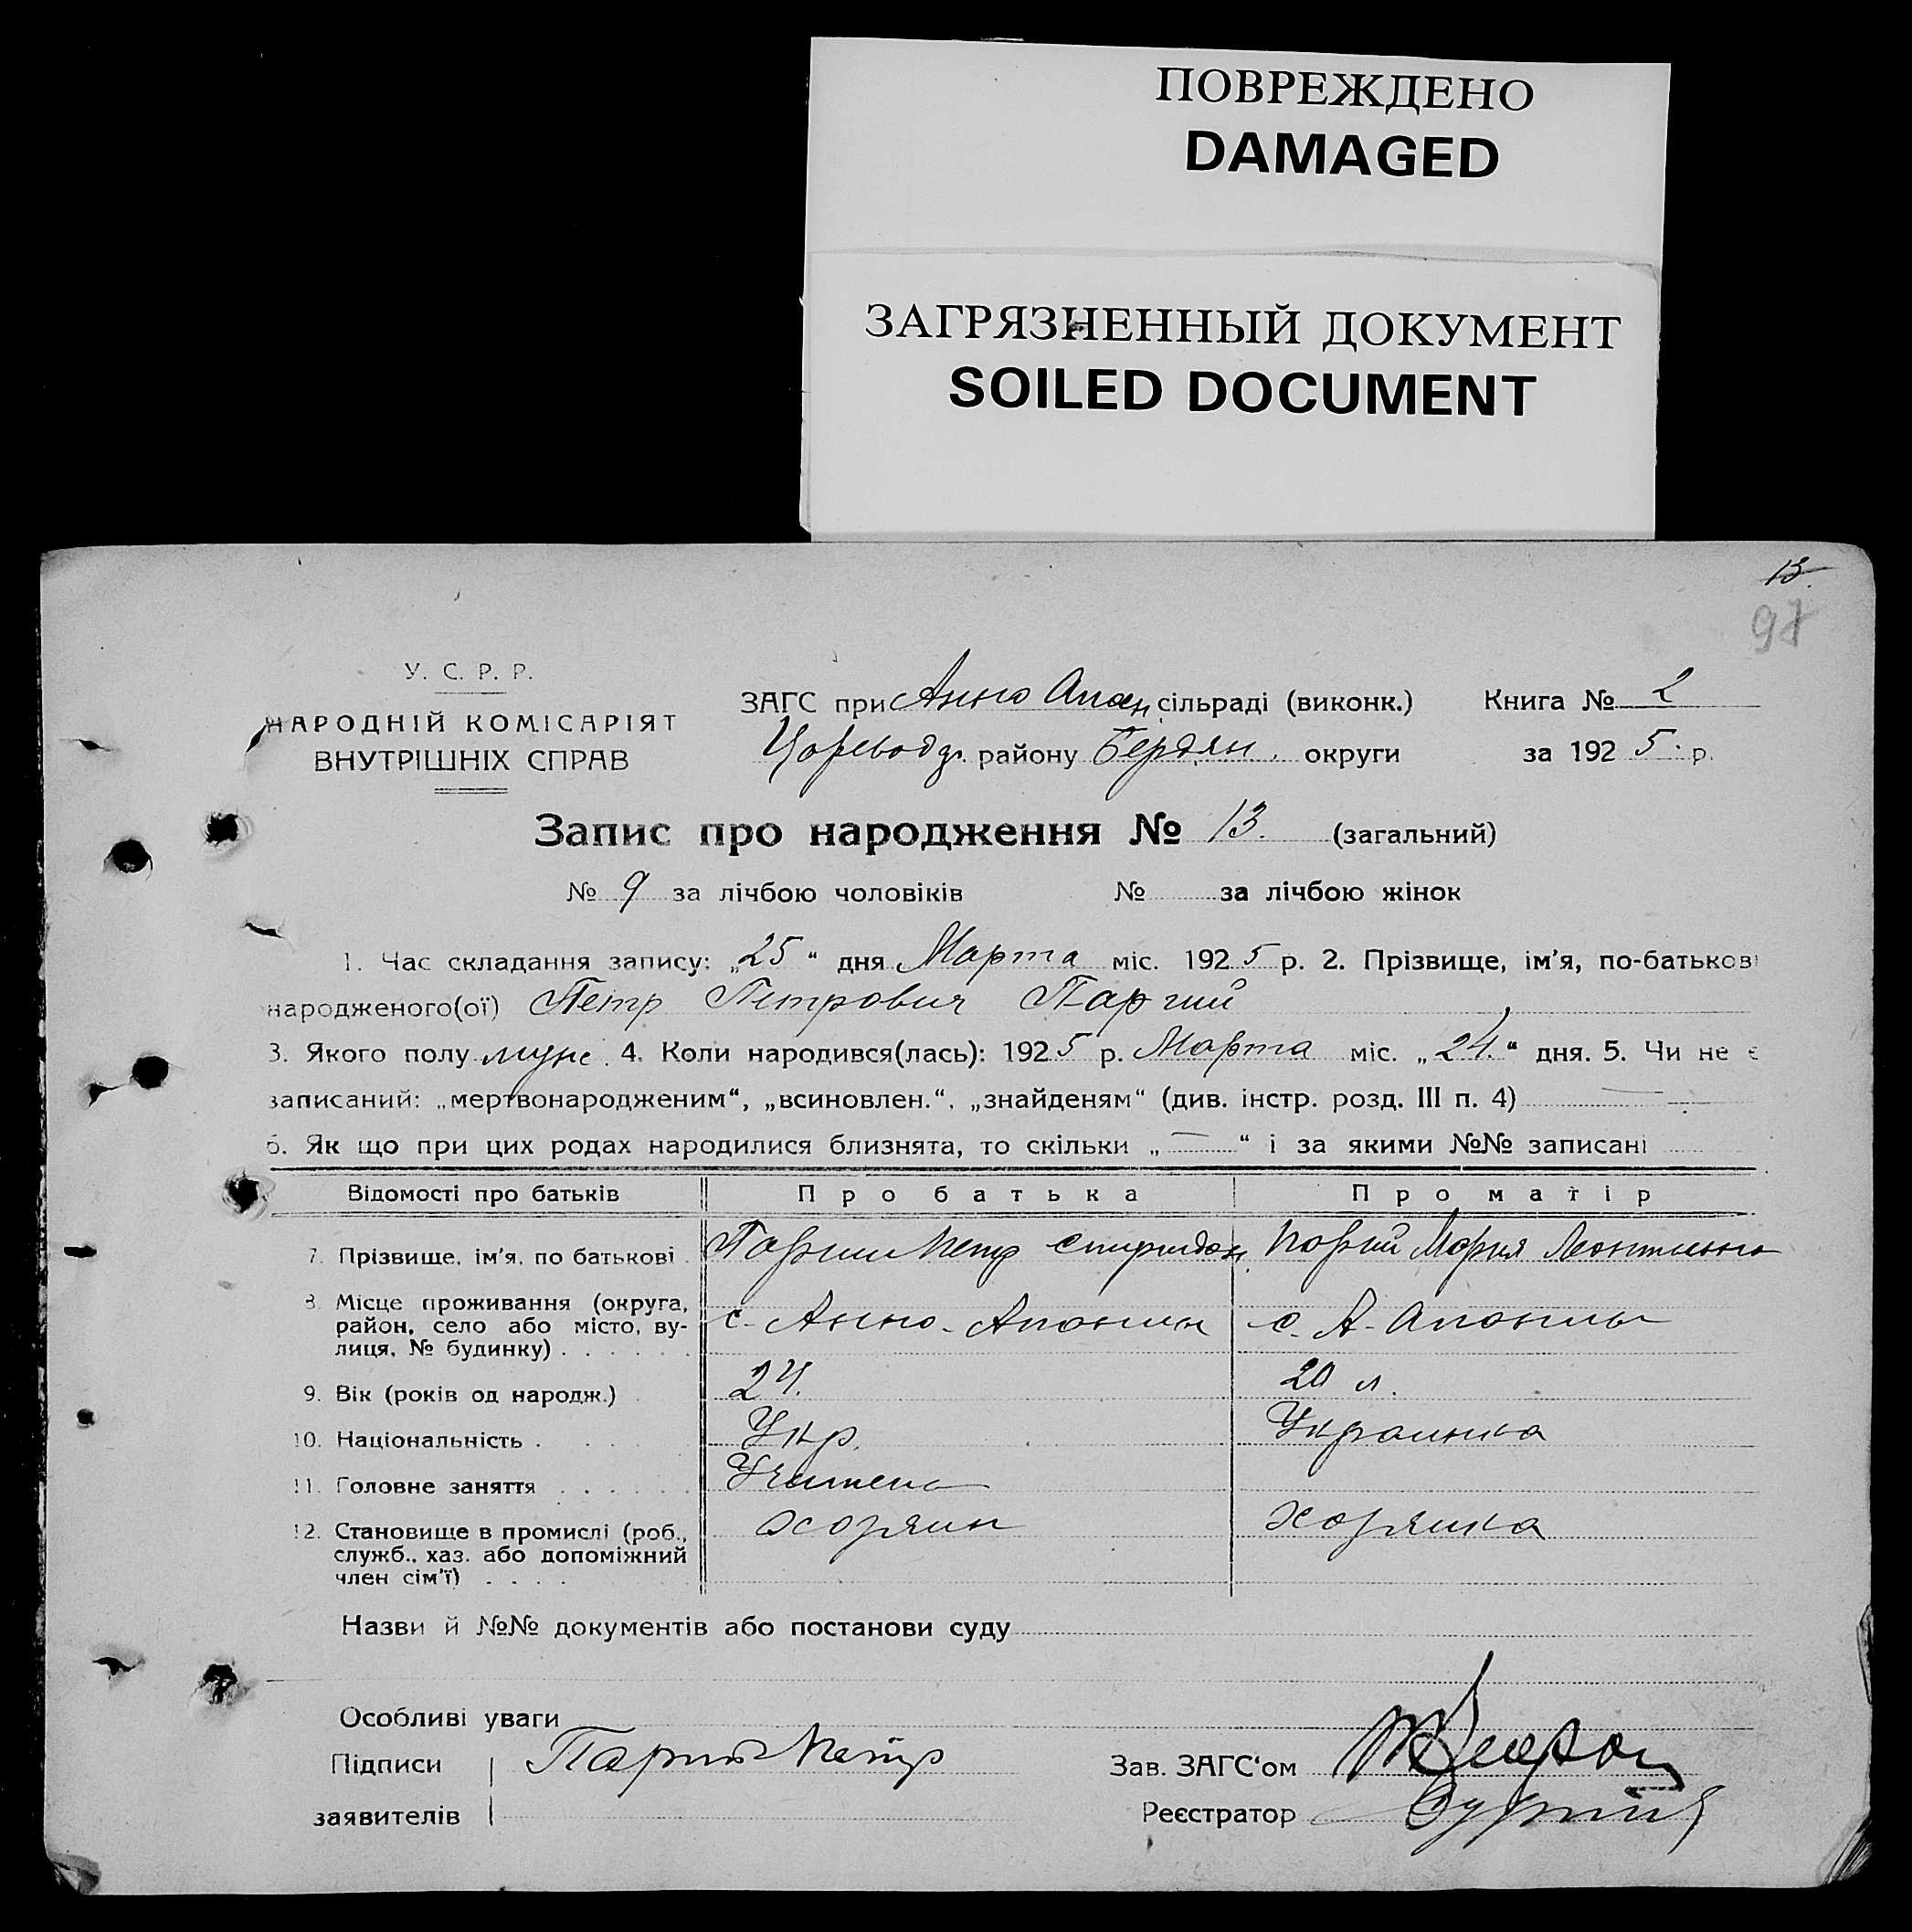 ПОВРЕЖДЕНО
DAMAGED
ЗАГРЯЗНЕННЫЙ ДОКУМЕНТ
SOILED DOCUMENT
13.
97
У. С. Р. Р.
НАРОДНІЙ КОМІСАРІЯТ
ВНУТРІШНІХ СПРАВ
ЗАГС при Анно Апан. сільраді (виконк.) Книга № 2
району Бердян. округи за 1925 р.
Запис про народження № 13. (загальний)
№ 9 за лічбою чоловіків № за лічбою жінок
1. Час складання запису: „25“ дня Марта міс. 1925 р. 2. Прізвище, ім'я, по-батькові
народженого(ої) Петр Петрович Паргий
3. Якого полу муж. 4. Коли народився(лась): 1925 р. Марта міс. „24.“ дня. 5. Чи не є
записаний: „мертвонародженим“, „всиновлен.“, „знайденям“ (див. інстр. розд. III п. 4) —
6. Як що при цих родах народилися близнята, то скільки „—“ і за якими №№ записані
Відомості про батьків Про батька Про матір
7. Прізвище, ім'я, по батькові . Петр Спиридон. Мария Леонтьевна
8. Місце проживання (округа, район, село або місто, вулиця, № будинку) . . . . . . с. Анно- с. А-
9. Вік (років од народж.) 24. 20 л.
10. Національність . Укр. Украинка
11. Головне заняття . . . . . .
12. Становище в промислі (роб., служб., хаз. або допоміжний член сім'ї) . . . . хозяин хозяйка
Назви й №№ документів або постанови суду
Особливі уваги
Підписи Петр Зав. ЗАГС'ом
заявителів Реєстратор